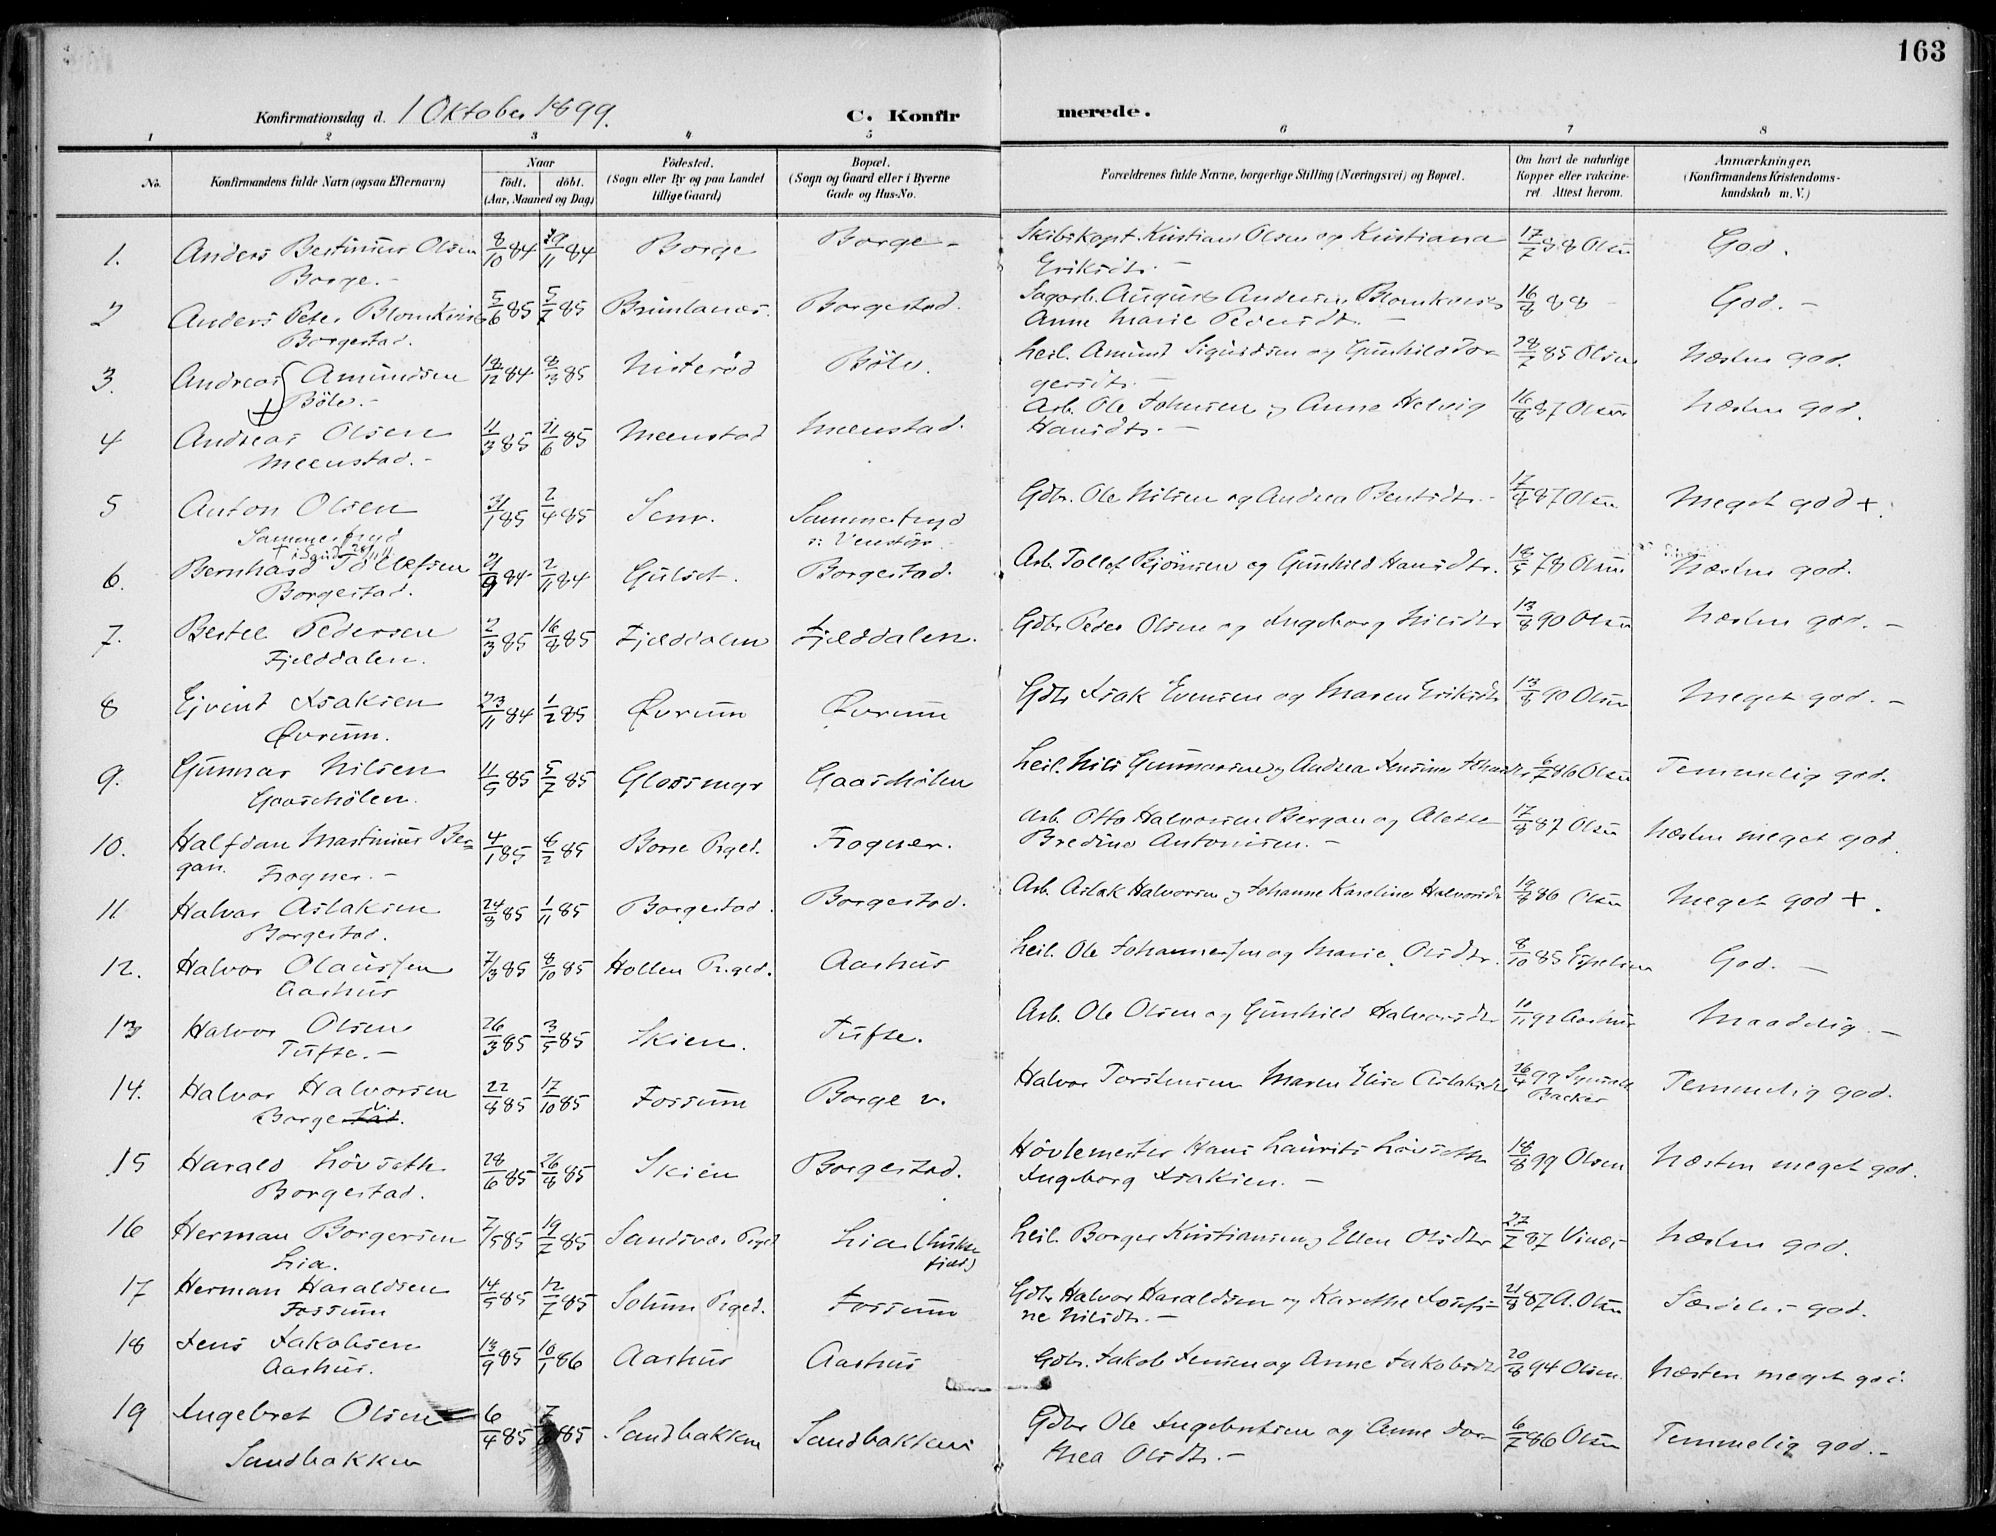 163
Konfirmationsdag d. 1 Oktober 1899.
C. Konfir merede.
1 2 3 4 5 6 7 8
No.
Konfirmandens fulde Navn (ogsaa Efternavn)
Naar
födt. döbt.
(Aar, Maaned og Dag)
Födested.
(Sogn eller By og paa Landet
tillige Gaard)
Bopæl.
(Sogn og Gaard eller i Byerne
Gade og Hus-No.
Forældrenes fulde Navne, borgerlige Stilling (Næringsvei) og Bopæl.
Om havt de naturlige
Kopper eller vakcine-
ret. Attest herom.
Anmærkninger.
(Konfirmandens Kristendoms-
kundskab m. V.)
1. Anders Bertinius Olsen 8/10 84 29/11 84 Borge Borge - Skibskapt. Kristian Olsen og Kristiana 17/7 88 Olsen God.
Borge. - Eriksdtr. -
2 Anders Peter Blomkvist 5/6 85 5/7 85 Brunlanæs. Borgestad. Sagarb. August Andersen Blomkvist 16/8 88 God. -
Borgestad. Anne Marie Pedersdt. -
3. Andreas Amundsen 18/12 84 8/3 85 Nisterød Böle. Leil. Amund Sigurdsen og Gunhild Tor- 28/7 85 Olsen Næsten god.
Böle. - gersdtr. -
4 Andreas Olsen 11/3 85 21/6 85 Meenstad Meenstad. Arb. Ole Johnsen og Anne Helvig 16/8 87 Olsen Næsten god.
Meenstad. - Hansdtr. -
5 Anton Olsen 31/1 85 2/4 85 Senr. Sammerfryd Gdbr. Ole Nilsen og Andrea Bentsdtr. - 17/8 87 Olsen Meget god +.
Sammerfryd
6. Bernhard Tollefsen 21/9 84 2/11 84 Gulset. Borgestad. Arb. Tollef Bjönsen og Gunhild Hansdtr. 18/5 78 Olsen Næsten god.
Borgestad.
7. Bertel Pedersen 2/3 85 16/8 85 Fjælddalen Fjælddalen. Gdbr Peder Olsen og Ingeborg Nilsdtr 13/8 90 Olsen Næsten god. -
Fjælddalen.
8 Ejvind Isaksen 23/11 84 1/2 85 Øvrum Øvrum Gdbr Isak Evensen og Maren Eriksdtr 13/8 90 Olsen Meget god. -
Øvrum.
9. Gunnar Nilsen 11/5 85 5/7 85 Glossmyr Gaasehölen Leil. Nils Gunnarsen og Andrea Jensine 6/7 86 Olsen Temmelig god.
Gaasehölen.
10. Halfdan Martinius Ber= 4/1 85 8/2 85 Borse Prgd. Frogner. Arb. Otto Halvorsen Bergan og Alette 17/8 87 Olsen Næsten meget god.
gan. Frogner. - Bredine Antonisen. -
11 Halvor Aslaksen 24/8 85 1/11 85 Borgestad. Borgestad. Arb. Aslak Halvorsen og Johanne Karoline Halvorsdt 19/8 86 Olsen Meget god +.
Borgestad.
12. Halvor Olaussen 7/3 85 8/10 85 Hollen Prgd. Aarhus Leil. Ole Johannessen og Marie Olsdtr. 8/10 85 God. -
Aarhus
13 Halvor Olsen 26/3 85 3/5 85 Skien. Tufte. Arb. Ole Olsen og Gunhild Halvorsdtr Maadelig. -
Tufte. -
14. Halvor Halvorsen 22/8 85 17/10 85 Fossum Borge v. Halvor Torstensen Maren Elise Aslaksdtr 26/4 99 Backer Temmelig god.
Borge v.
15 Harald Lövseth 28/6 85 26/8 85 Skien Borgestad. Hövlemester Hans Laurits Lövseth 18/8 99 Olsen Næsten meget god.
Borgestad. Ingeborg Isaksen. -
16 Herman Borgersen 7/5 85 19/7 85 Sandsvær Prgd Lia Leil. Borger Kristiansen og Ellen Olsdtr 27/7 87 Næsten god.
Lia.
17 Herman Haraldsen 14/5 85 12/7 85 Solum Prgd. Fossum Gdbr Halvor Haraldsen og Karethe Josefi- 21/8 87 A. Olsen Særdeles god.
Fossum ne Nilsdtr. -
18 Jens Jakobsen 13/9 85 10/1 86 Aarhus Aarhus Gdbr. Jakob Jensen og Anne Jakobsdtr 20/8 94 Olsen. Næsten meget god.
Aarhus.
19 Ingebret Olsen 6/4 85 Sandbakken Sandbakken Gdbr Ole Ingebretsen og Anne Dor- 6/7 86 Olsen Temmelig god. -
Sandbakken thea Olsdtr. -